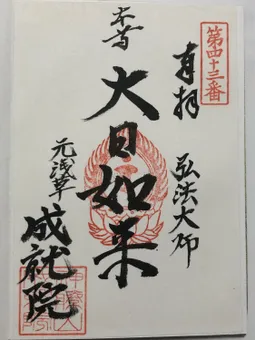 第四十三番
奉拝
弘法大师
本尊
大日如来
元浅草
成就院